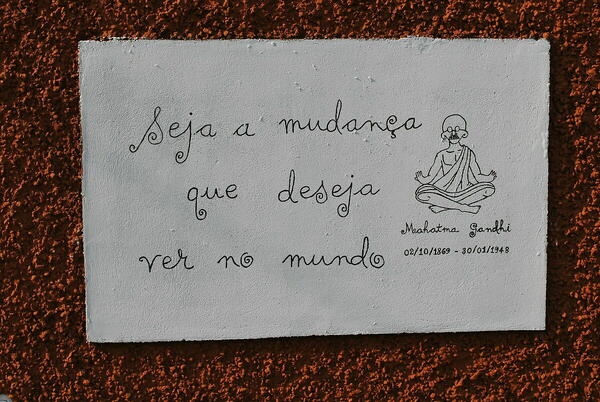 Seja a mudança
que deseja
ver no mundo
Mahatma Gandhi
02/10/1869 - 30/01/1948